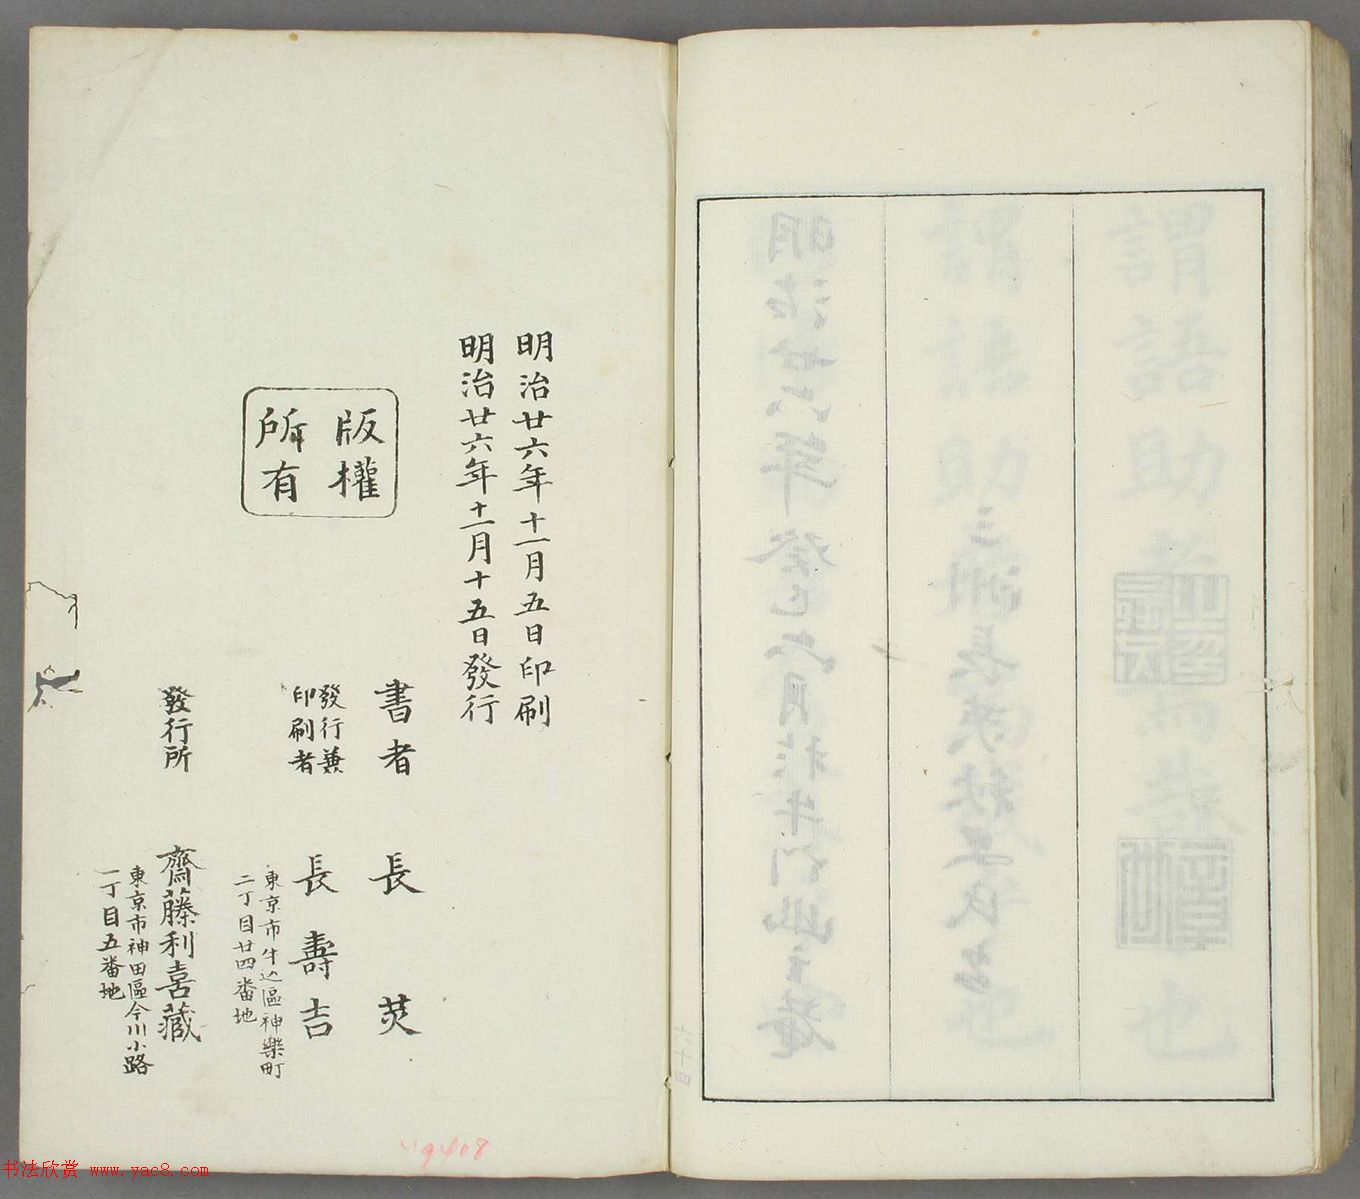 明治廿六年十一月五日印刷
明治廿六年十一月十五日發行
版權
所有
書者 長 炗
發行兼
印刷者
長壽吉
東京市牛込區神樂町
二丁目廿四番地
發行所
齋藤利喜藏
東京市神田區今川小路
一丁目五番地
謂語助者焉哉
也
明治廿六年癸巳六月於牛門
六十四
书法欣赏 www.yac8.com